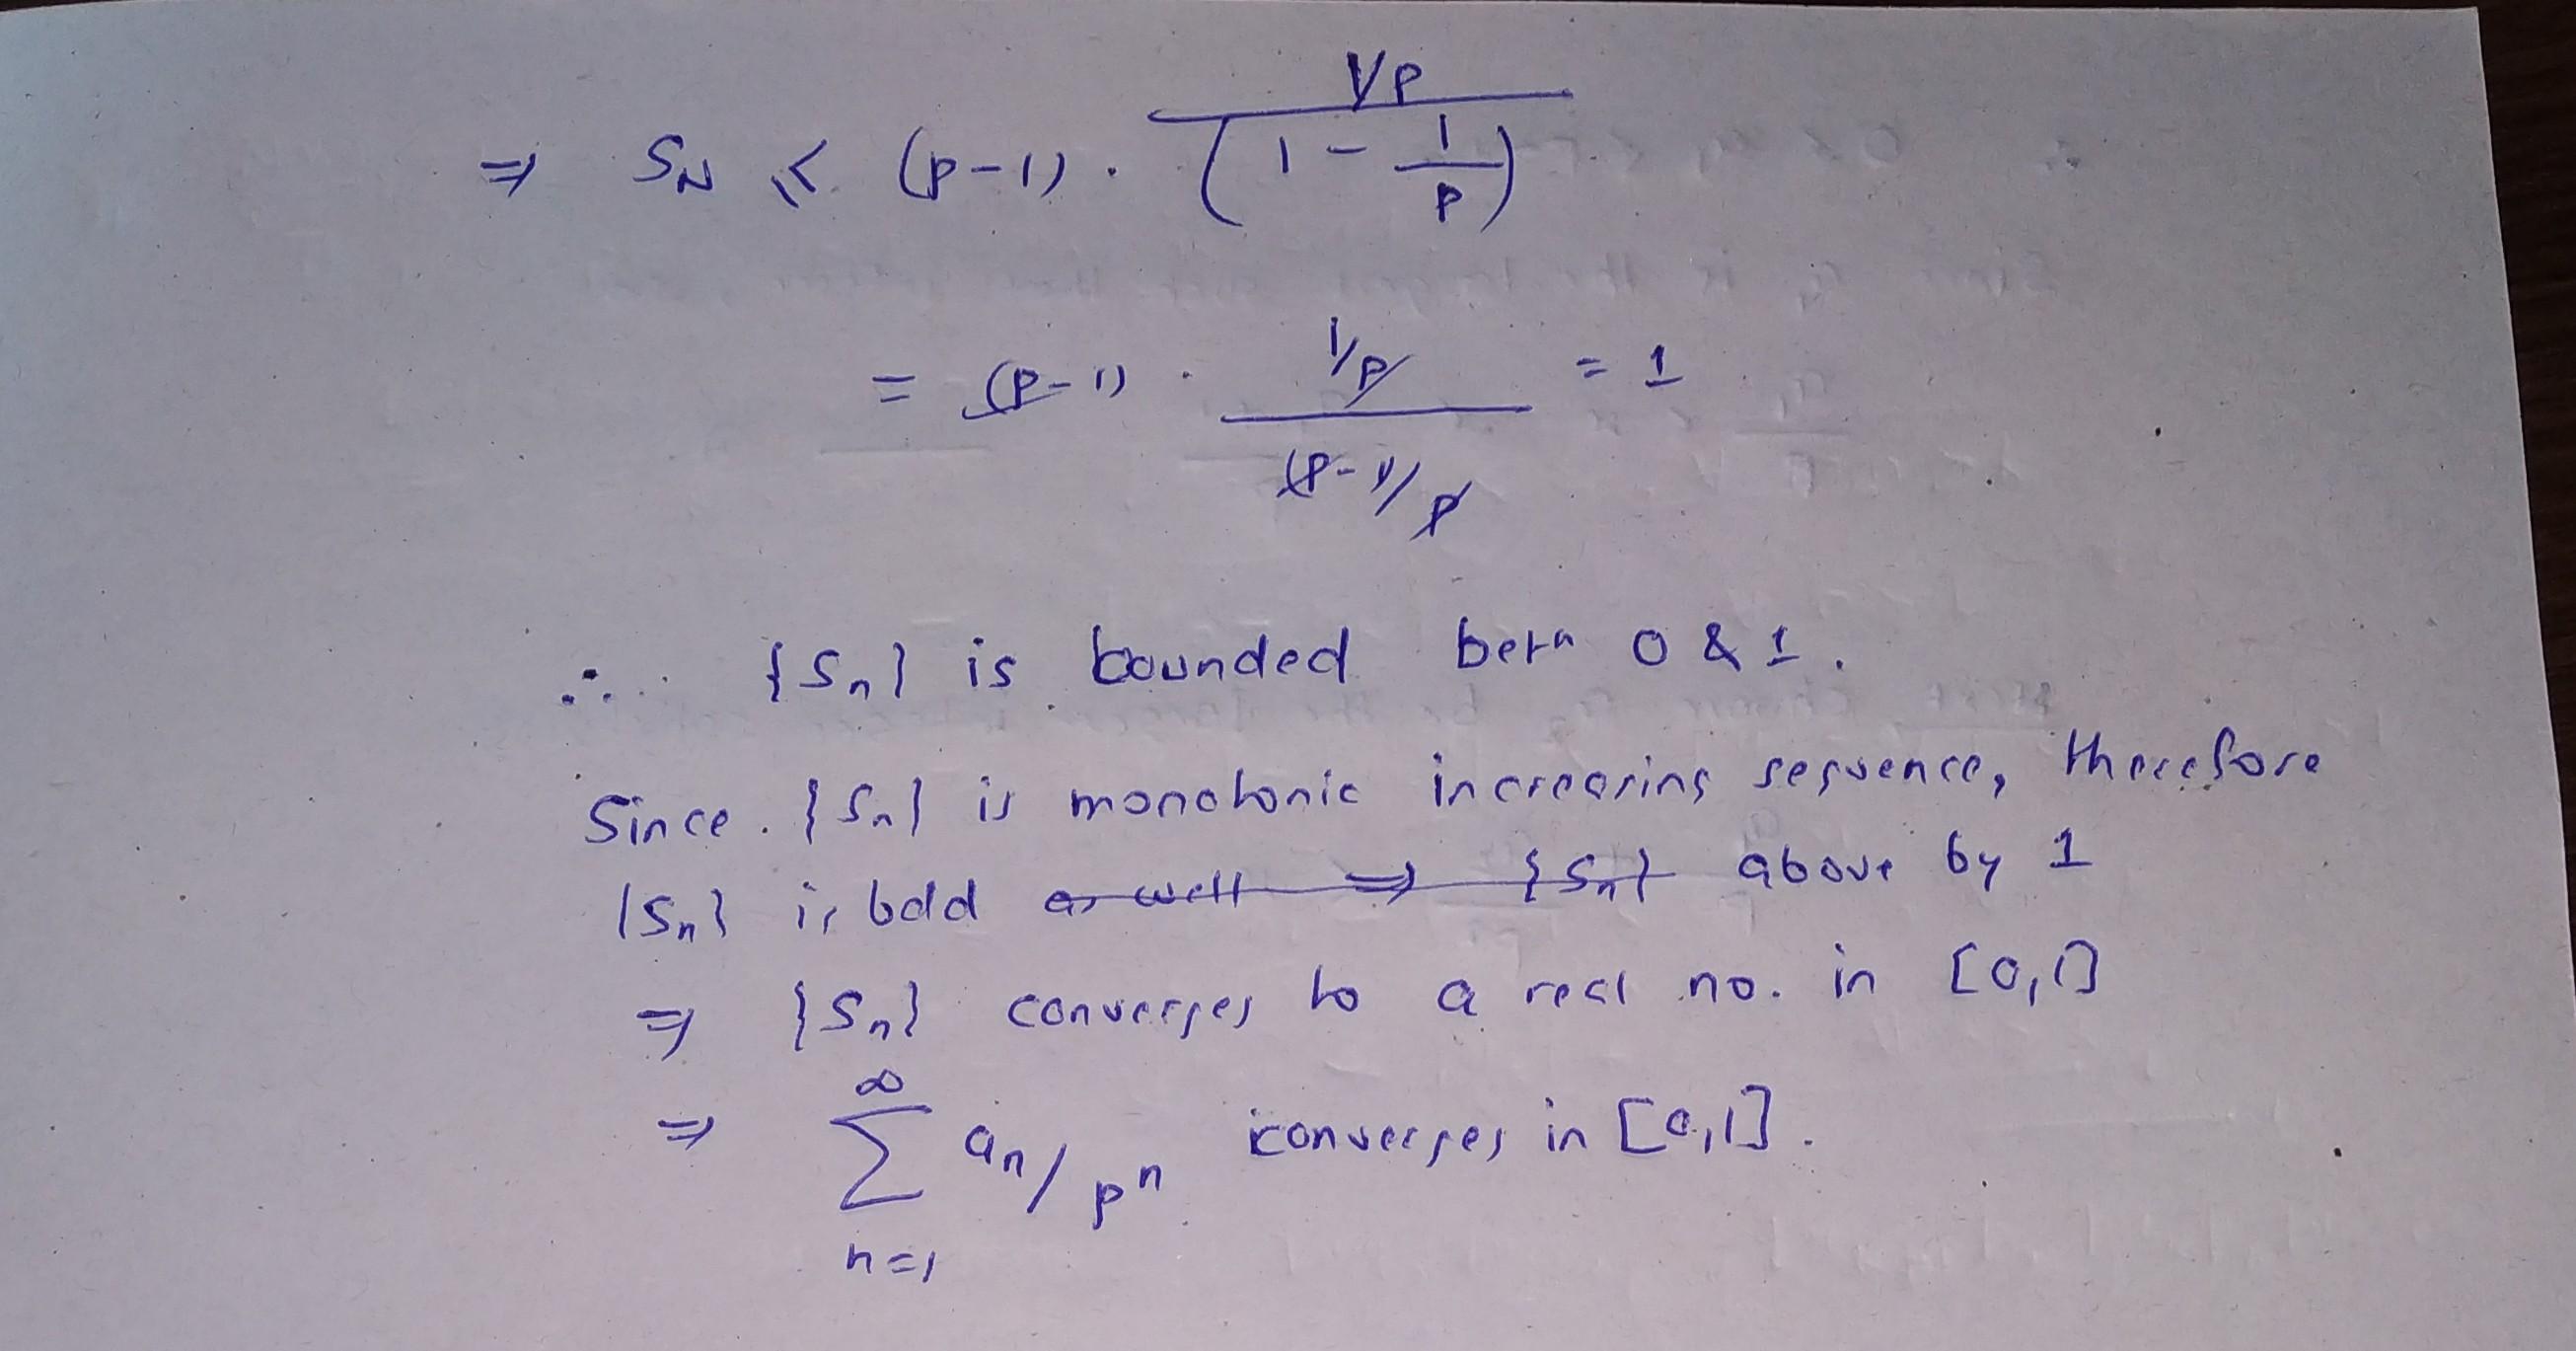 ⇒ S_N ≤ (p-1) · (1/p) / (1 - 1/p)
= (p-1) · (1/p) / ((p-1)/p) = 1
∴ {Sn} is bounded betn 0 & 1.
Since {Sn} is monotonic increasing sequence, therefore
{Sn} is bdd as well ⇒ {Sn} above by 1
⇒ {Sn} converges to a real no. in [0,1]
⇒ ∞∑n=1 an/pn converges in [0,1].